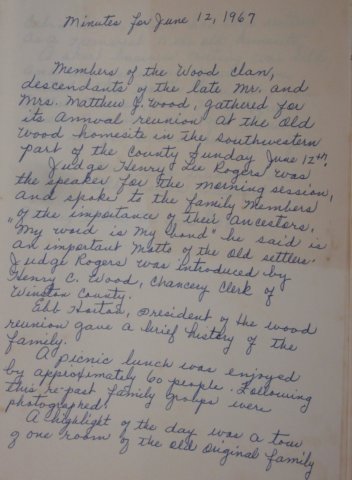 Minutes for June 12, 1967
Members of the Wood clan,
descendants of the late Mr. and
Mrs. Matthew J. Wood, gathered for
its annual reunion at the old
Wood homesite in the southwestern
part of the County Sunday June 12th.
Judge Henry Lee Rogers was
the speaker for the morning session,
and spoke to the family members
of the importance of their ancestors.
"My word is my bond" he said is
an important Motto of the old settlers.
Judge Rogers was introduced by
Henry C. Wood, Chancery Clerk of
Winston County.
Ebb Horton, President of the wood
reunion gave a brief history of the
family.
A picnic lunch was enjoyed
by approximately 60 people. Following
this re-past family groups were
photographed.
A highlight of the day was a tour
of one room of the old original family